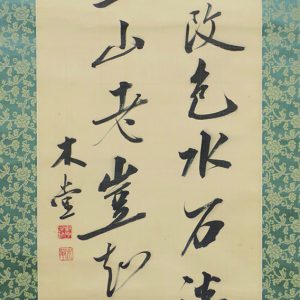 改色水石
山老豈知
木堂